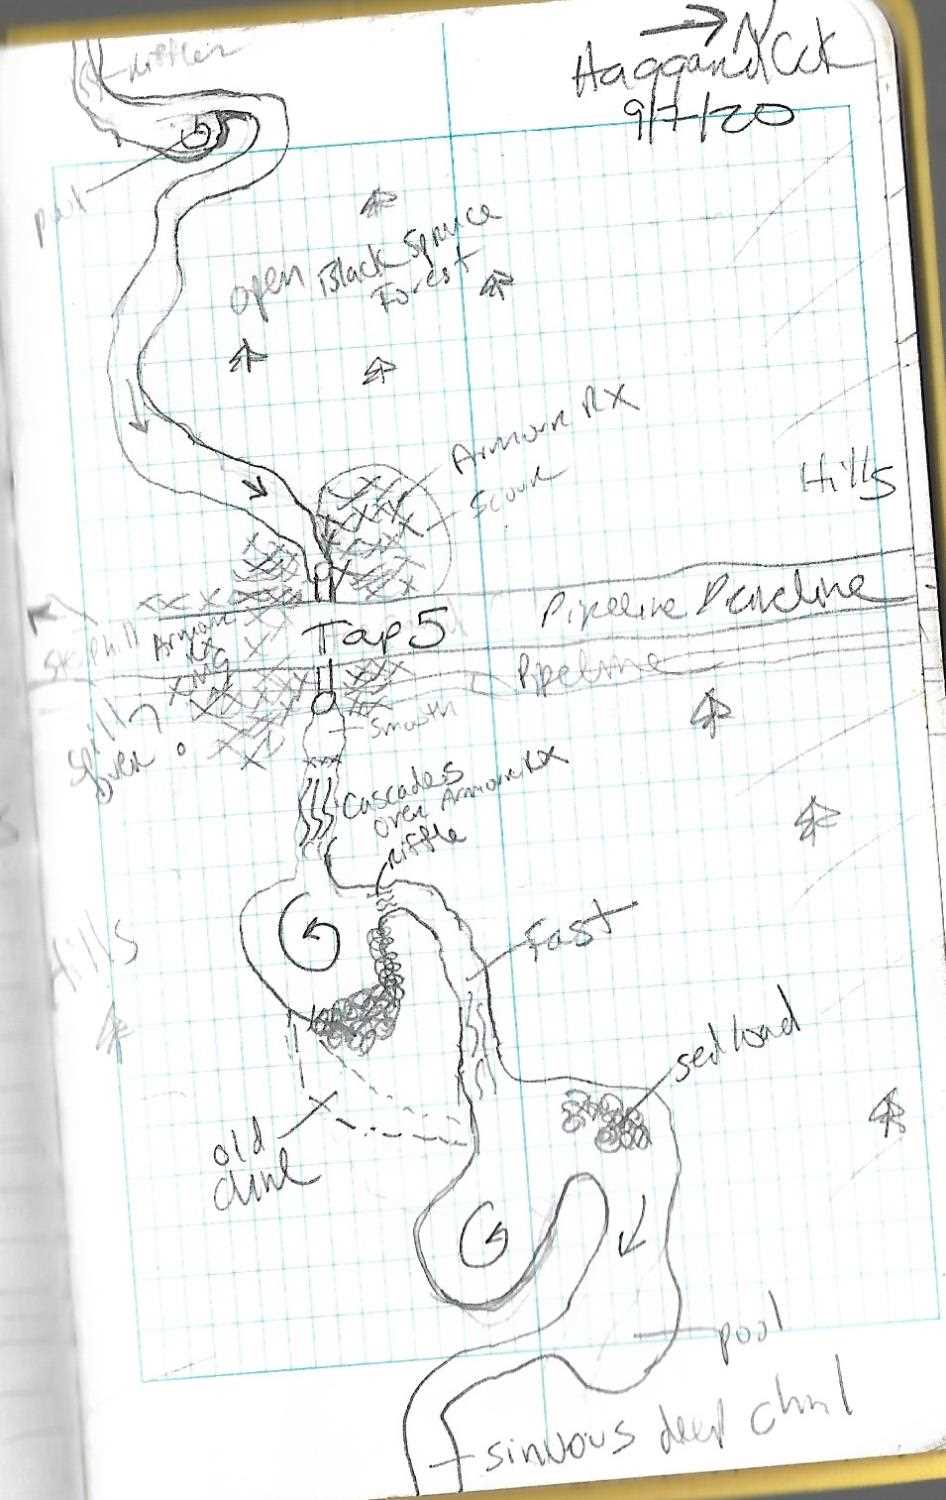 N
Haggard Crk
9/7/20
riffles
open Black Spruce
Forest
Armour RX
Scour
Hills
Pipeline Driveline
Armour
Tap 5
Pipeline
Spill
over
Smooth
Cascades
over Armour RX
riffle
Hills
Fast
sed load
old
chnl
pool
sinuous deep chnl